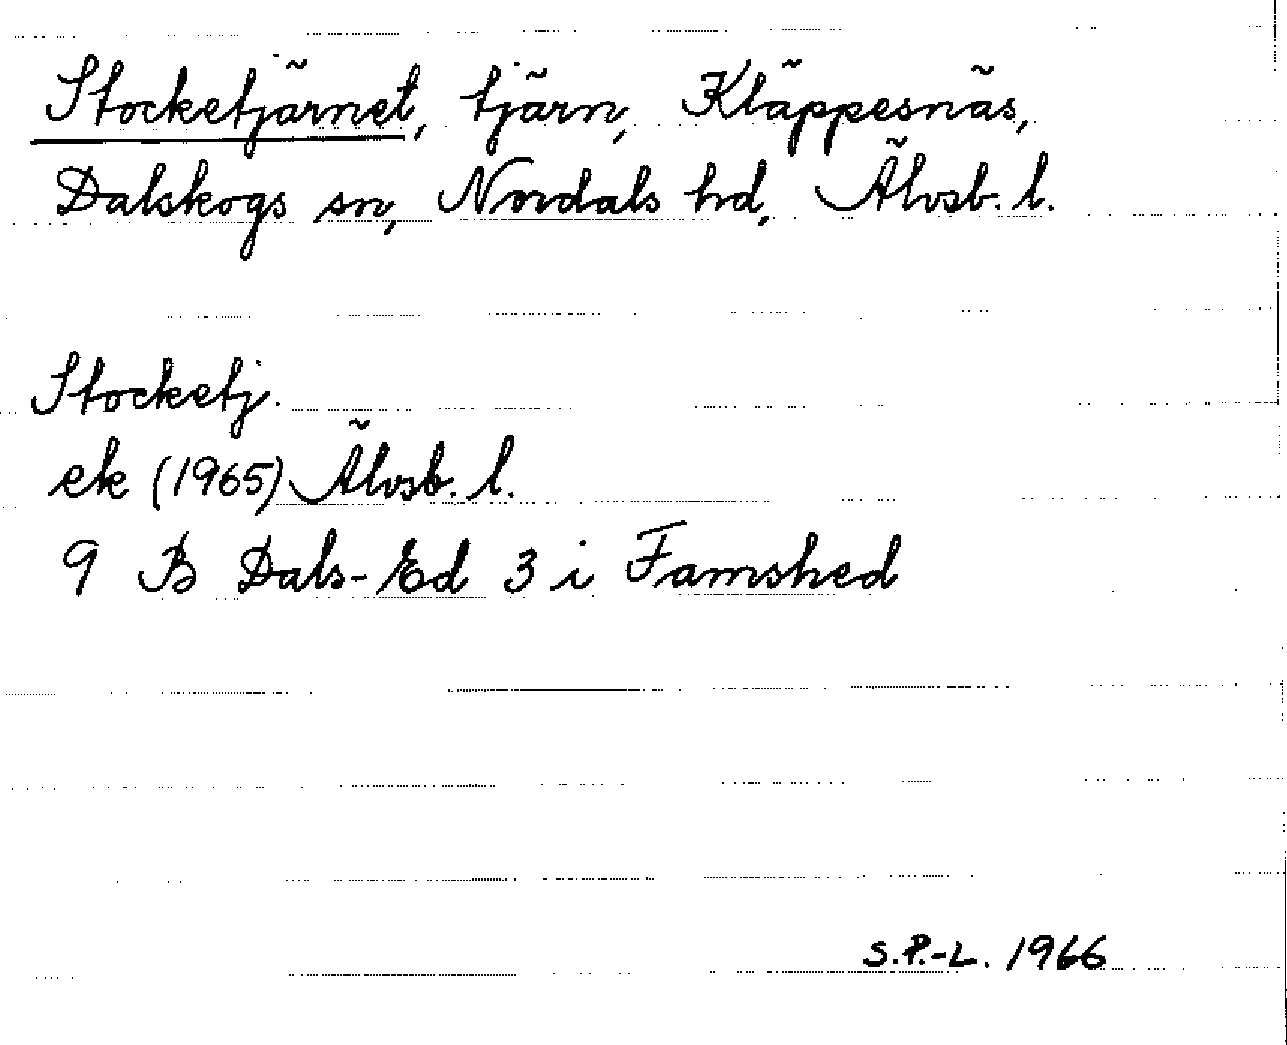 Stocketjärnet, tjärn, Kläppesnäs,
Dalskogs sn, Nordals hd, Älvsb. l.
Stocketj.
ek (1965) Älvsb. l.
9 B Dals-Ed 3 i Famshed
S.P.-L. 1966